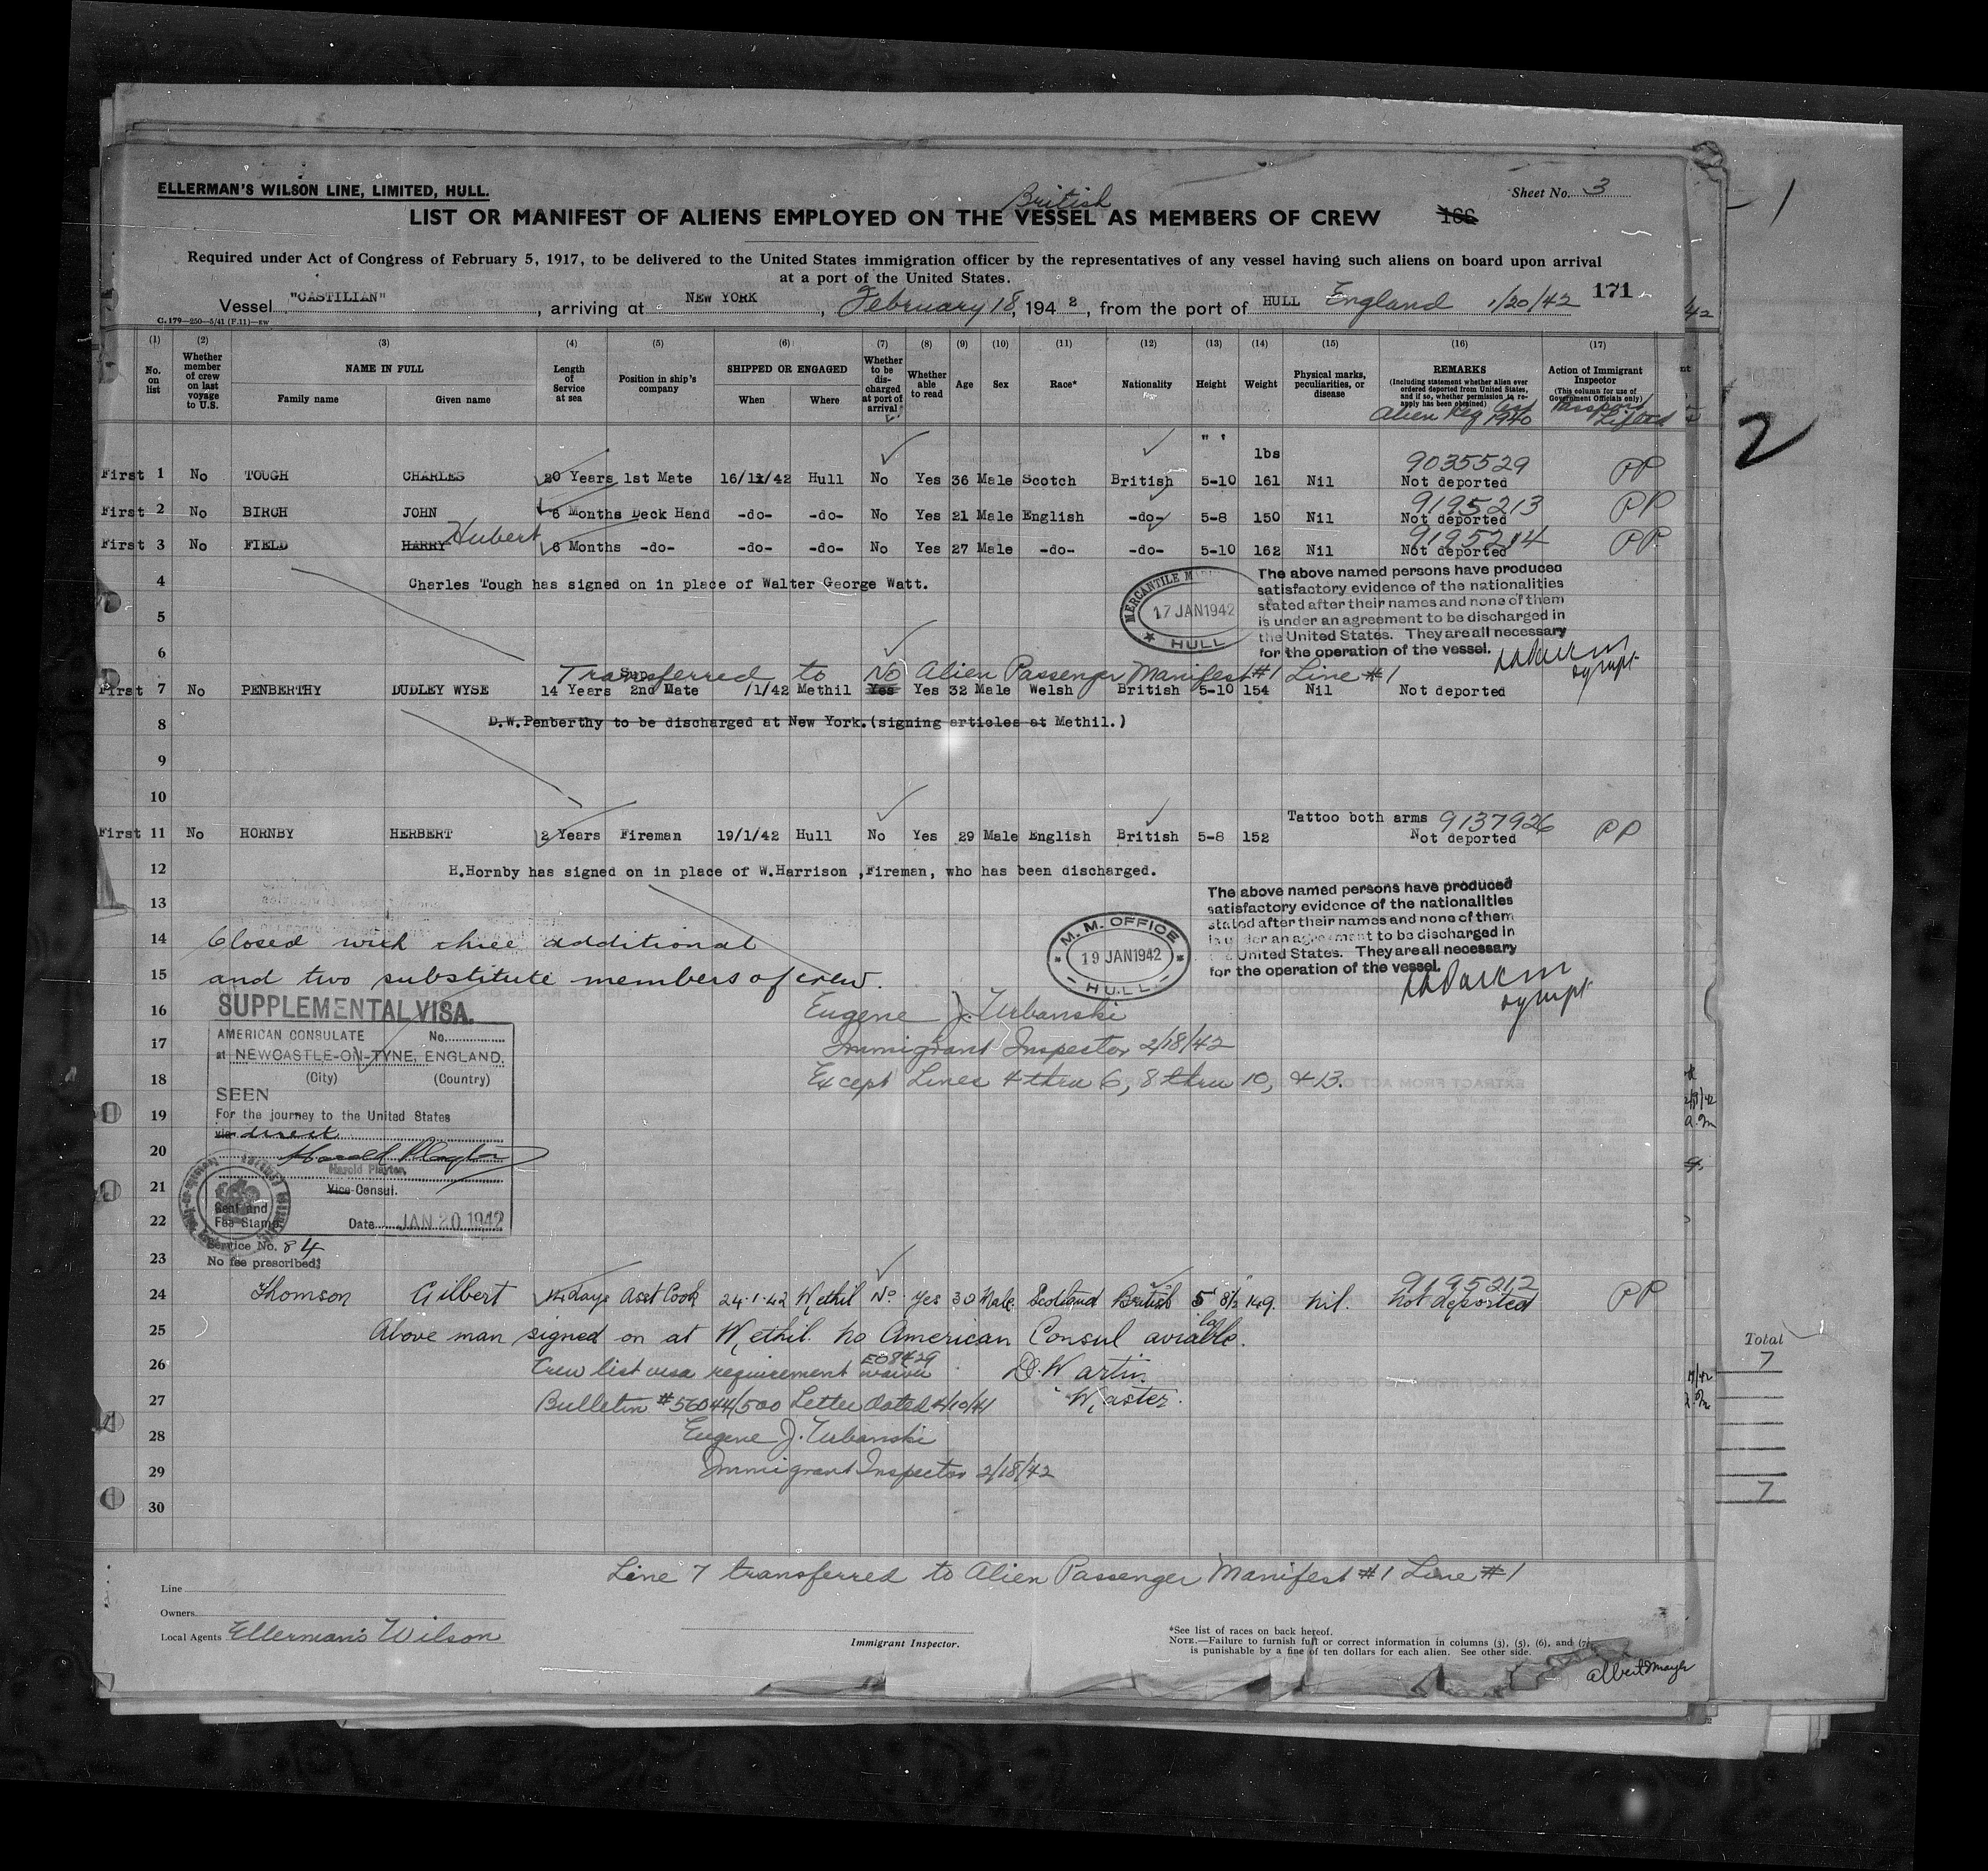 ELLERMAN'S WILSON LINE, LIMITED, HULL.
Sheet No. 3
British
LIST OR MANIFEST OF ALIENS EMPLOYED ON THE VESSEL AS MEMBERS OF CREW 166
Required under Act of Congress of February 5, 1917, to be delivered to the United States immigration officer by the representatives of any vessel having such aliens on board upon arrival
at a port of the United States.
Vessel "CASTILIAN", arriving at NEW YORK, February 18, 1942, from the port of HULL England 1/20/42 171
C.179—250—5/41 (F.11)—EW
(1) (2) (3) (4) (5) (6) (7) (8) (9) (10) (11) (12) (13) (14) (15) (16) (17)
No. on list
Whether member of crew on last voyage to U.S.
NAME IN FULL
Family name Given name
Length of Service at sea
Position in ship's company
SHIPPED OR ENGAGED
When Where
Whether to be discharged at port of arrival
Whether able to read
Age Sex Race* Nationality Height Weight
Physical marks, peculiarities, or disease
REMARKS
(Including statement whether alien ever ordered deported from United States, and if so, whether permission to reapply has been obtained)
Alien Reg Act 1940
Action of Immigrant Inspector
(This column for use of Government Officials only)
Passport Lifted
" ' lbs
First 1 No TOUGH CHARLES 20 Years 1st Mate 16/11/42 Hull No Yes 36 Male Scotch British 5-10 161 Nil 9035529 Not deported PP
First 2 No BIRCH JOHN 6 Months Deck Hand -do- -do- No Yes 21 Male English -do- 5-8 150 Nil 9195213 Not deported PP
First 3 No FIELD HARRY Hubert 6 Months -do- -do- -do- No Yes 27 Male -do- -do- 5-10 162 Nil 9195214 Not deported PP
4 Charles Tough has signed on in place of Walter George Watt.
MERCANTILE
17 JAN 1942
HULL
The above named persons have produced
satisfactory evidence of the nationalities
stated after their names and none of them
is under an agreement to be discharged in
the United States. They are all necessary
for the operation of the vessel.
5
6
Transferred to No Alien Passenger Manifest #1 Line #1
First 7 No PENBERTHY DUDLEY WYSE 14 Years Sup. 2nd Mate /1/42 Methil Yes Yes 32 Male Welsh British 5-10 154 Nil Not deported
8 D.W.Penberthy to be discharged at New York.(signing articles at Methil.)
9
10
First 11 No HORNBY HERBERT 2 Years Fireman 19/1/42 Hull No Yes 29 Male English British 5-8 152 Tattoo both arms 9137926 Not deported PP
12 H.Hornby has signed on in place of W.Harrison ,Fireman, who has been discharged.
13
M. M. OFFICE
19 JAN 1942
HULL
The above named persons have produced
satisfactory evidence of the nationalities
stated after their names and none of them
is under an agreement to be discharged in
the United States. They are all necessary
for the operation of the vessel.
14 Closed with three additional
15 and two substitute members of crew.
16 Eugene J. Urbanski
17 Immigrant Inspector 2/18/42
18 Except Lines 4 thru 6, 8 thru 10, & 13.
SUPPLEMENTAL VISA.
AMERICAN CONSULATE No.
at NEWCASTLE-ON-TYNE, ENGLAND.
(City) (Country)
SEEN
19 For the journey to the United States
via direct
20
Harold Playter,
21 Vice Consul.
Seal and
22 Fee Stamp Date JAN 20 1942
Service No. 84
23 No fee prescribed.
24 Thomson Gilbert 14 days Asst Cook 24.1.42 Methil No yes 30 Male Scotland British 5' 8½ 149. nil. 9195212 not deported PP
25 Above man signed on at Methil. No American Consul avialable.
26 Crew list visa requirement waived EO 8429 D. Martin
27 Bulletin #56044/500 Letter dated 4/10/41 Master.
28 Eugene J. Urbanski
29 Immigrant Inspector 2/18/42
30
Line 7 transferred to Alien Passenger Manifest #1 Line #1
Line
Owners
Local Agents Ellerman's Wilson
Immigrant Inspector.
*See list of races on back hereof.
NOTE.—Failure to furnish full or correct information in columns (3), (5), (6), and (7)
is punishable by a fine of ten dollars for each alien. See other side.
- 1
2
Total
7
7